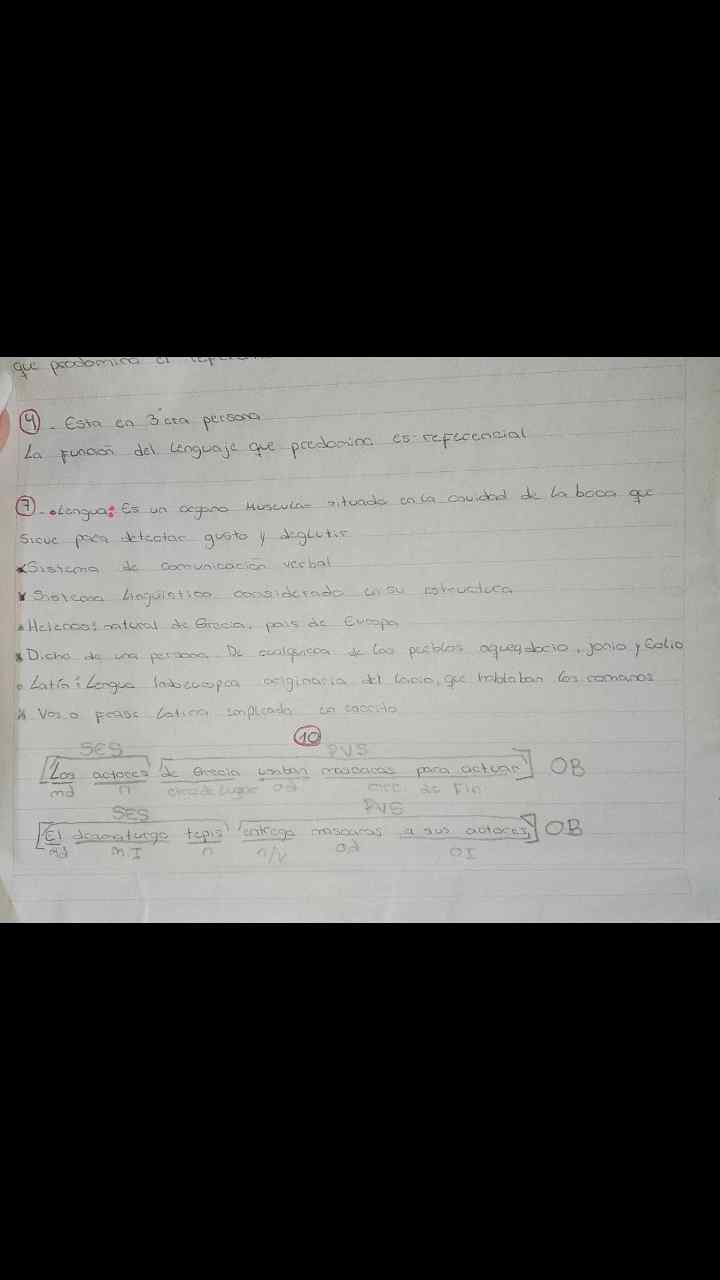 que predomina el
④ - Esta en 3°era persona
La función del lenguaje que predomina es: referencial
⑦ - • Lengua: Es un organo Muscular situado en la cavidad de la boca que
sirve para detectar gusto y deglutir
* Sistema de comunicación verbal
* Sistema Linguistico considerado en su estructura
* Helenos: natural de Grecia, pais de Europa
* Dicho de una persona De cualquiera de los pueblos , jonio y Eolio
• Latín: Lengua Indoeuropea originaria del Lacio, que hablaban los romanos
* Voz o frase Latina empleada en escrito
⑩
SES PVS
[Los actores de Grecia usaban mascaras para actuar] OB
md n circ de lugar od circ. de Fin
SES PVS
[El dramaturgo tepis entrega mascaras a sus actores] OB
md m.I n n/v od OI